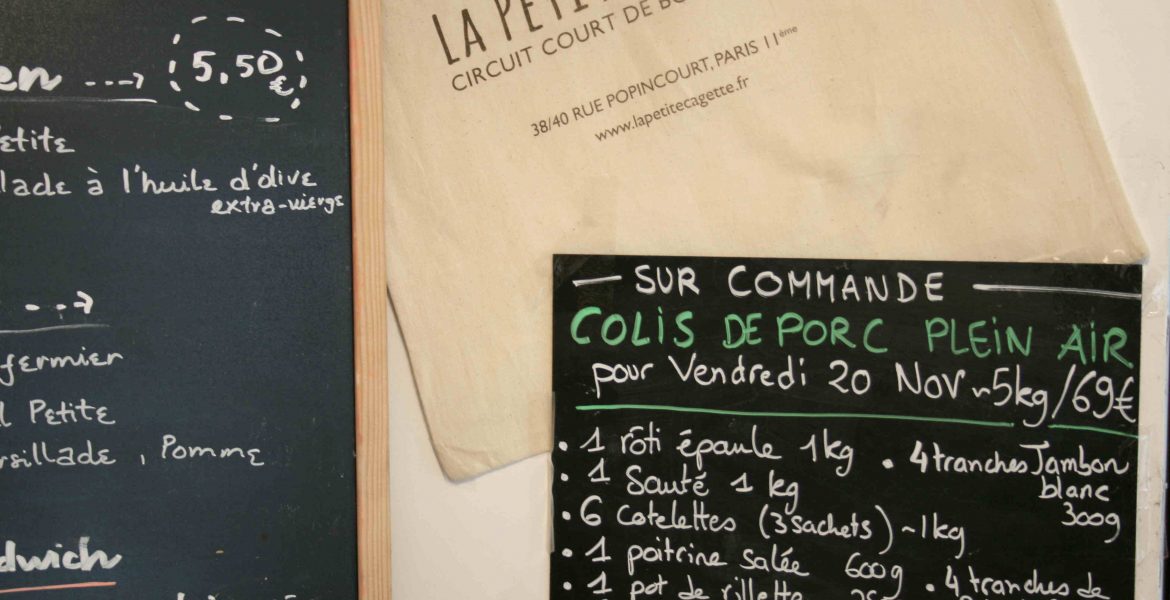 5,50
€
à l'huile d'olive
extra-vierge
fermier
Petite
, Pomme
LA
CIRCUIT COURT DE
38/40 RUE POPINCOURT, PARIS 11ème
www.lapetitecagette.fr
SUR COMMANDE
COLIS DE PORC PLEIN AIR
pour Vendredi 20 NOV ~5kg/69€
• 1 rôti épaule 1kg
• 1 Sauté 1 kg
• 6 cotelettes (3 sachets) ~1kg
• 1 poitrine salée 600g
• 1 pot de rillette
• 4 tranches Jambon
blanc
300g
• 4 tranches de